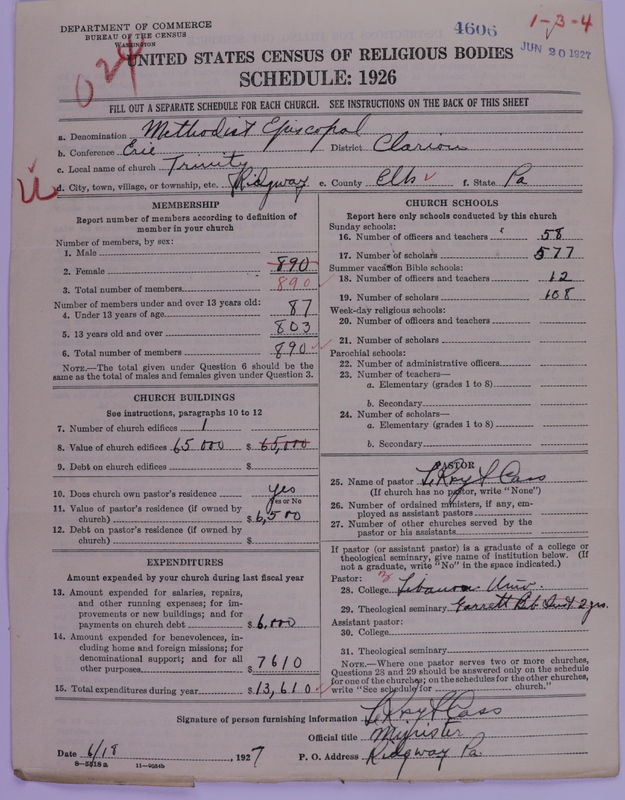 DEPARTMENT OF COMMERCE
BUREAU OF THE CENSUS
WASHINGTON
4606
1-3-4
JUN 20 1927
024
UNITED STATES CENSUS OF RELIGIOUS BODIES
SCHEDULE: 1926
FILL OUT A SEPARATE SCHEDULE FOR EACH CHURCH. SEE INSTRUCTIONS ON THE BACK OF THIS SHEET
a. Denomination Methodist Episcopal
b. Conference Erie District Clarion
c. Local name of church Trinity
d. City, town, village, or township, etc. Ridgway e. County Elk f. State Pa
MEMBERSHIP
Report number of members according to definition of
member in your church
Number of members, by sex:
1. Male
2. Female 890
3. Total number of members 890
Number of members under and over 13 years old:
4. Under 13 years of age 87
5. 13 years old and over 803
6. Total number of members 890
NOTE.—The total given under Question 6 should be
same as the total of males and females given under Question 3.
CHURCH BUILDINGS
See instructions, paragraphs 10 to 12
7. Number of church edifices 1
8. Value of church edifices 65 000 $ 65,000
9. Debt on church edifices $
10. Does church own pastor's residence yes
Yes or No
11. Value of pastor's residence (if owned by
church) $ 6,500
12. Debt on pastor's residence (if owned by
church) $
EXPENDITURES
Amount expended by your church during last fiscal year
13. Amount expended for salaries, repairs,
and other running expenses; for im-
provements or new buildings; and for
payments on church debt $ 6,000
14. Amount expended for benevolences, in-
cluding home and foreign missions; for
denominational support; and for all
other purposes $ 7610
15. Total expenditures during year $ 13,610
CHURCH SCHOOLS
Report here only schools conducted by this church
Sunday schools:
16. Number of officers and teachers 58
17. Number of scholars 577
Summer vacation Bible schools:
18. Number of officers and teachers 12
19. Number of scholars 108
Week-day religious schools:
20. Number of officers and teachers
21. Number of scholars
Parochial schools:
22. Number of administrative officers
23. Number of teachers—
a. Elementary (grades 1 to 8)
b. Secondary
24. Number of scholars—
a. Elementary (grades 1 to 8)
b. Secondary
PASTOR
25. Name of pastor Cass
(If church has no pastor, write "None")
26. Number of ordained ministers, if any, em-
ployed as assistant pastors
27. Number of other churches served by the
pastor or his assistants
If pastor (or assistant pastor) is a graduate of a college or
theological seminary, give name of institution below. (If
not a graduate, write "No" in the space indicated.)
Pastor:
28. College Lebanon Univ.
29. Theological seminary Garrett Bib. Inst. 2 yrs.
Assistant pastor:
30. College
31. Theological seminary
NOTE.—Where one pastor serves two or more churches,
Questions 28 and 29 should be answered only on the schedule
for one of the churches; on the schedules for the other churches,
write "See schedule for church."
Signature of person furnishing information Cass
Official title Minister
Date 6/18, 1927 P. O. Address Ridgway Pa.
8-5518a 11-9564b